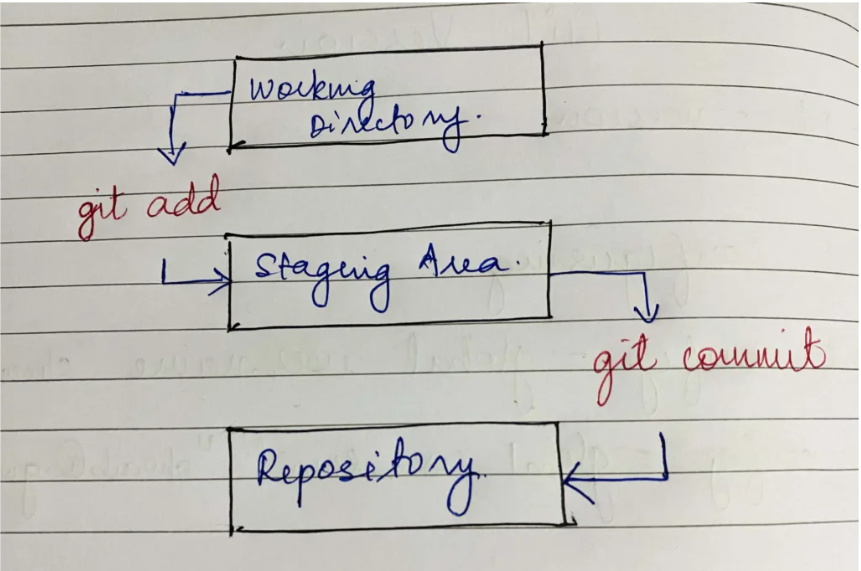 Working
Directory.
git add
Staging Area.
git commit
Repository.